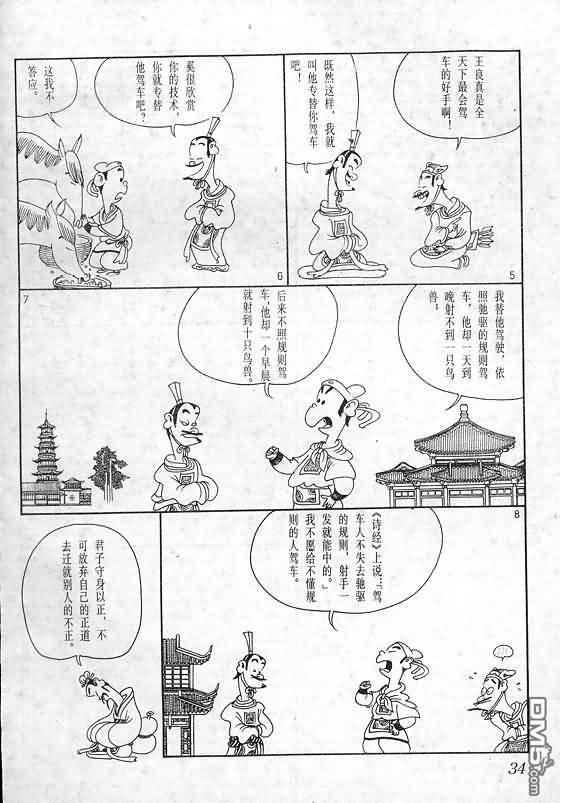 王良真是全
天下最会驾
车的好手啊!
既然这样，我就
叫他专替你驾车
吧!
5
奚很欣赏
你的技术，
你就专替
他驾车吧?
这我不
答应。
6
我替他驾驶，依
照驰驱的规则驾
车，他却一天到
晚射不到一只鸟
兽。
后来不照规则驾
车，他却一个早晨
就射到十只鸟兽。
7
《诗经》上说:“驾
车人不失去驰驱
的规则，射手一
发就能中的。”
我不愿给不懂规
则的人驾车。
8
君子守身以正，不
可放弃自己的正道
去迁就别人的不正。
34
DM5